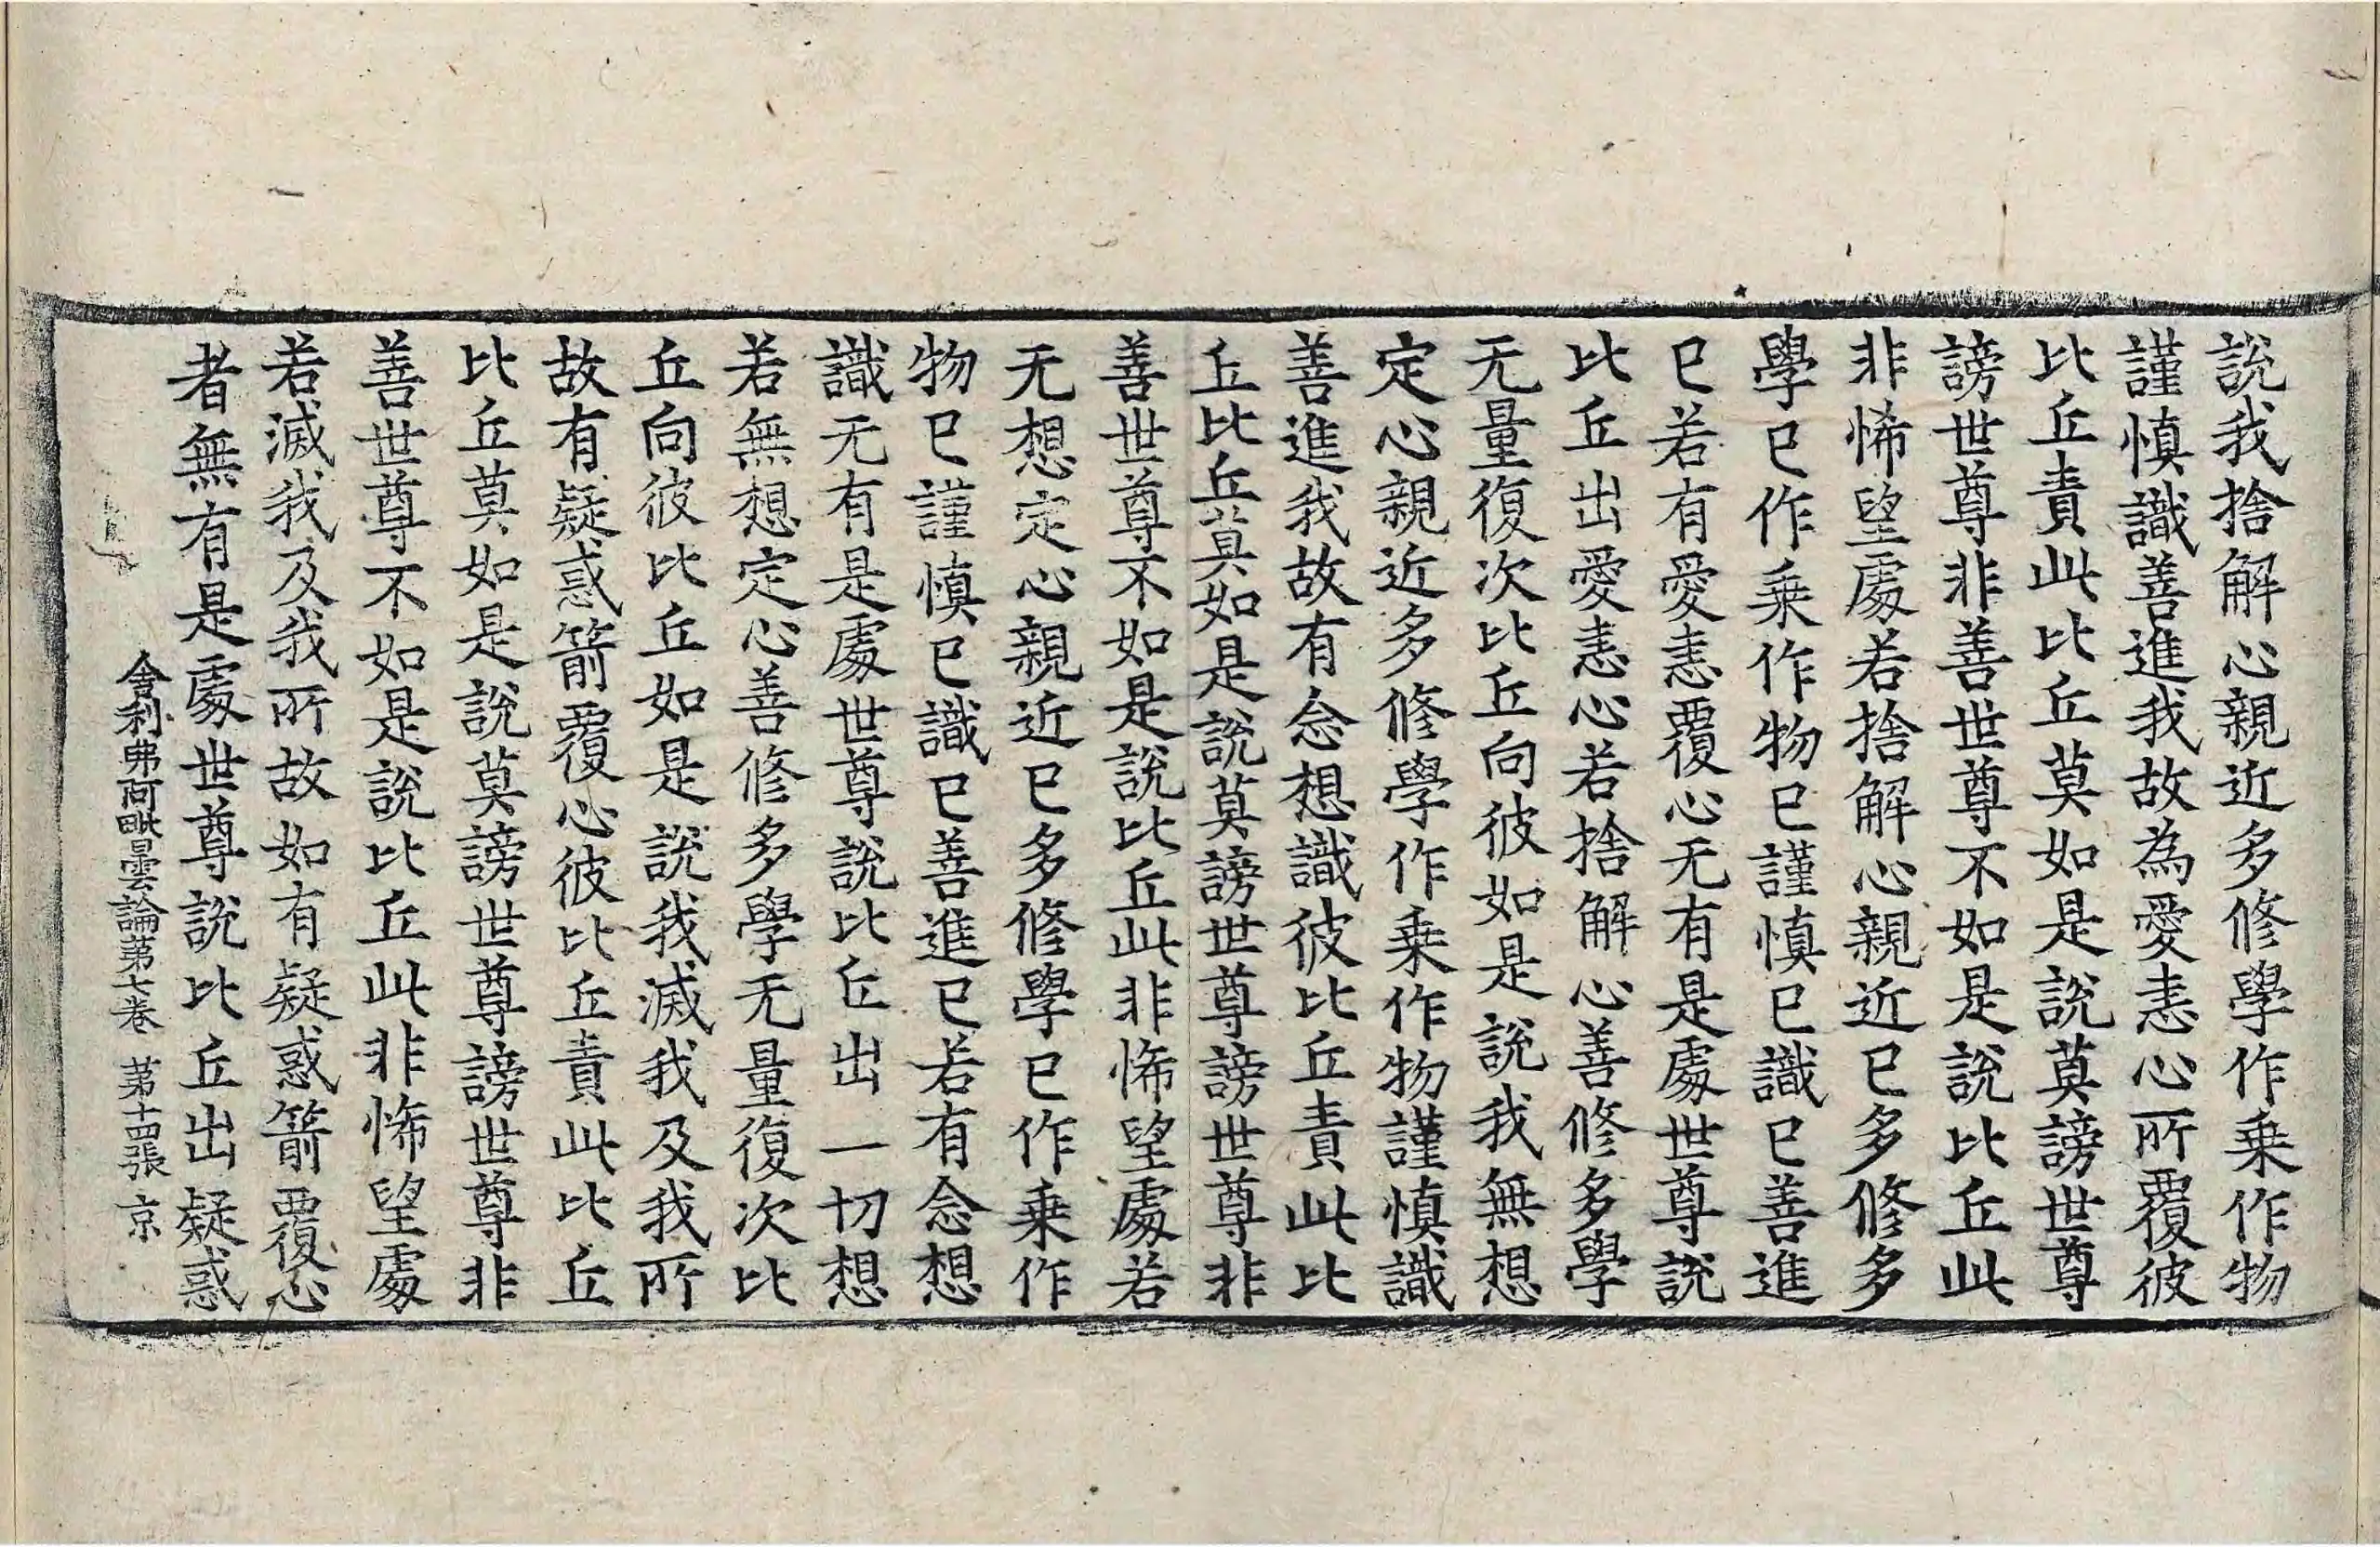 說我捨解心親近多修學作乗作物
謹慎識善進我故為愛恚心所覆彼
比丘責此比丘莫如是說莫謗世尊
謗世尊非善世尊不如是說比丘此
非悕望處若捨解心親近已多修多
學已作乗作物已謹慎已識已善進
已若有愛恚覆心无有是處世尊說
比丘出愛恚心若捨解心善修多學
无量復次比丘向彼如是說我無想
定心親近多修學作乗作物謹慎識
善進我故有念想識彼比丘責此比
丘比丘莫如是說莫謗世尊謗世尊非
善世尊不如是說比丘此非悕望處若
无想定心親近已多修學已作乗作
物已謹慎已識已善進已若有念想
識无有是處世尊說比丘出一切想
若無想定心善修多學无量復次比
丘向彼比丘如是說我滅我及我所
故有疑惑箭覆心彼比丘責此比丘
比丘莫如是說莫謗世尊謗世尊非
善世尊不如是說比丘此非悕望處
若滅我及我所故如有疑惑箭覆心
者無有是處世尊說比丘出疑惑
舍利弗阿毗曇論第七卷 第十四張 京